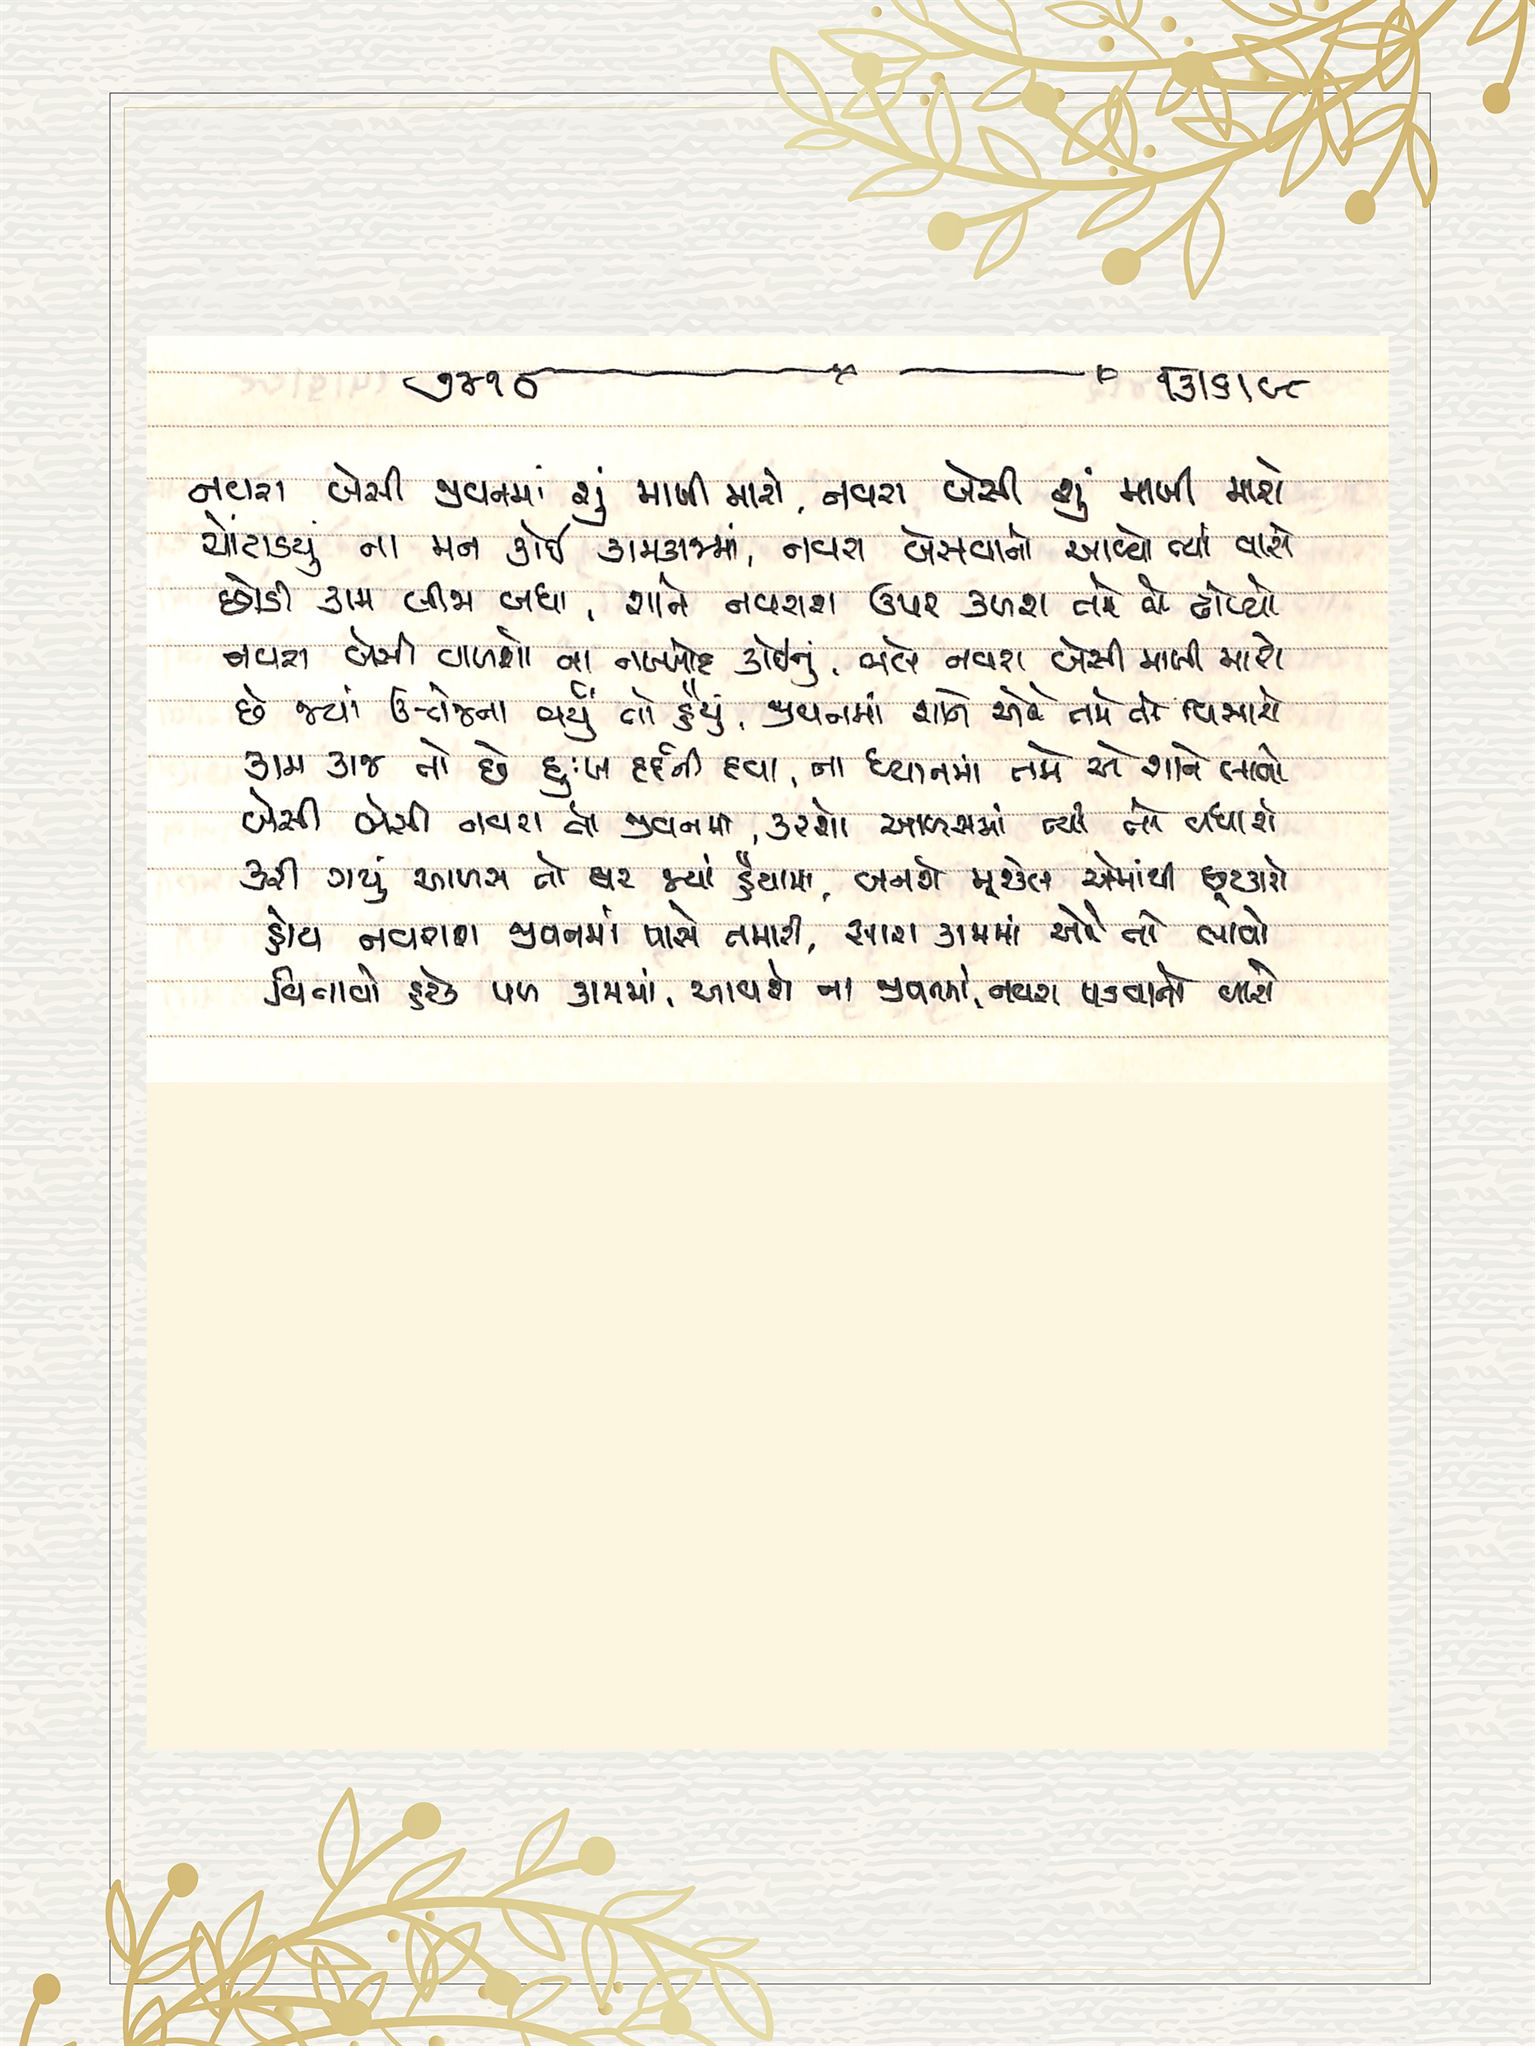 ૭૪૧૦ ૧૩|૬|૯૮
નવરા બેસી જીવનમાં શું માખી મારો, નવરા બેસી શું માખી મારો
ચોંટાડયું ના મન કોઈ કામકાજમાં, નવરા બેસવાનો આવ્યો ત્યાં વારો
છોડી કામ બીજા બધા, શાને નવરાશ ઉપર કળશ તમે ઢોળ્યો
નવરા બેસી વાળશો ના નખ્ખોદ કોઈનું, ભલે નવરા બેસી માખી મારો
છે જ્યાં ઉત્તેજના ભર્યું તો હૈયું, જીવનમાં શાને એને તમે તો વિસારો
કામ કાજ તો છે દુઃખ દર્દની દવા, ના ધ્યાનમાં તમે એ શાને લાવો
બેસી બેસી નવરા તો જીવનમાં, કરશો આળસમાં ત્યાં તો વધારો
કરી ગયું આળસ તો ઘર જ્યાં હૈયામાં, બનશે મૂશ્કેલ એમાંથી છૂટકારો
હોય નવરાશ જીવનમાં પાસે તમારી, સારા કામમાં એને તો લાવો
વિતાવો હરેક પળ કામમાં, આવશે ના જીવનમાં, નવરા પડવાનો વારો